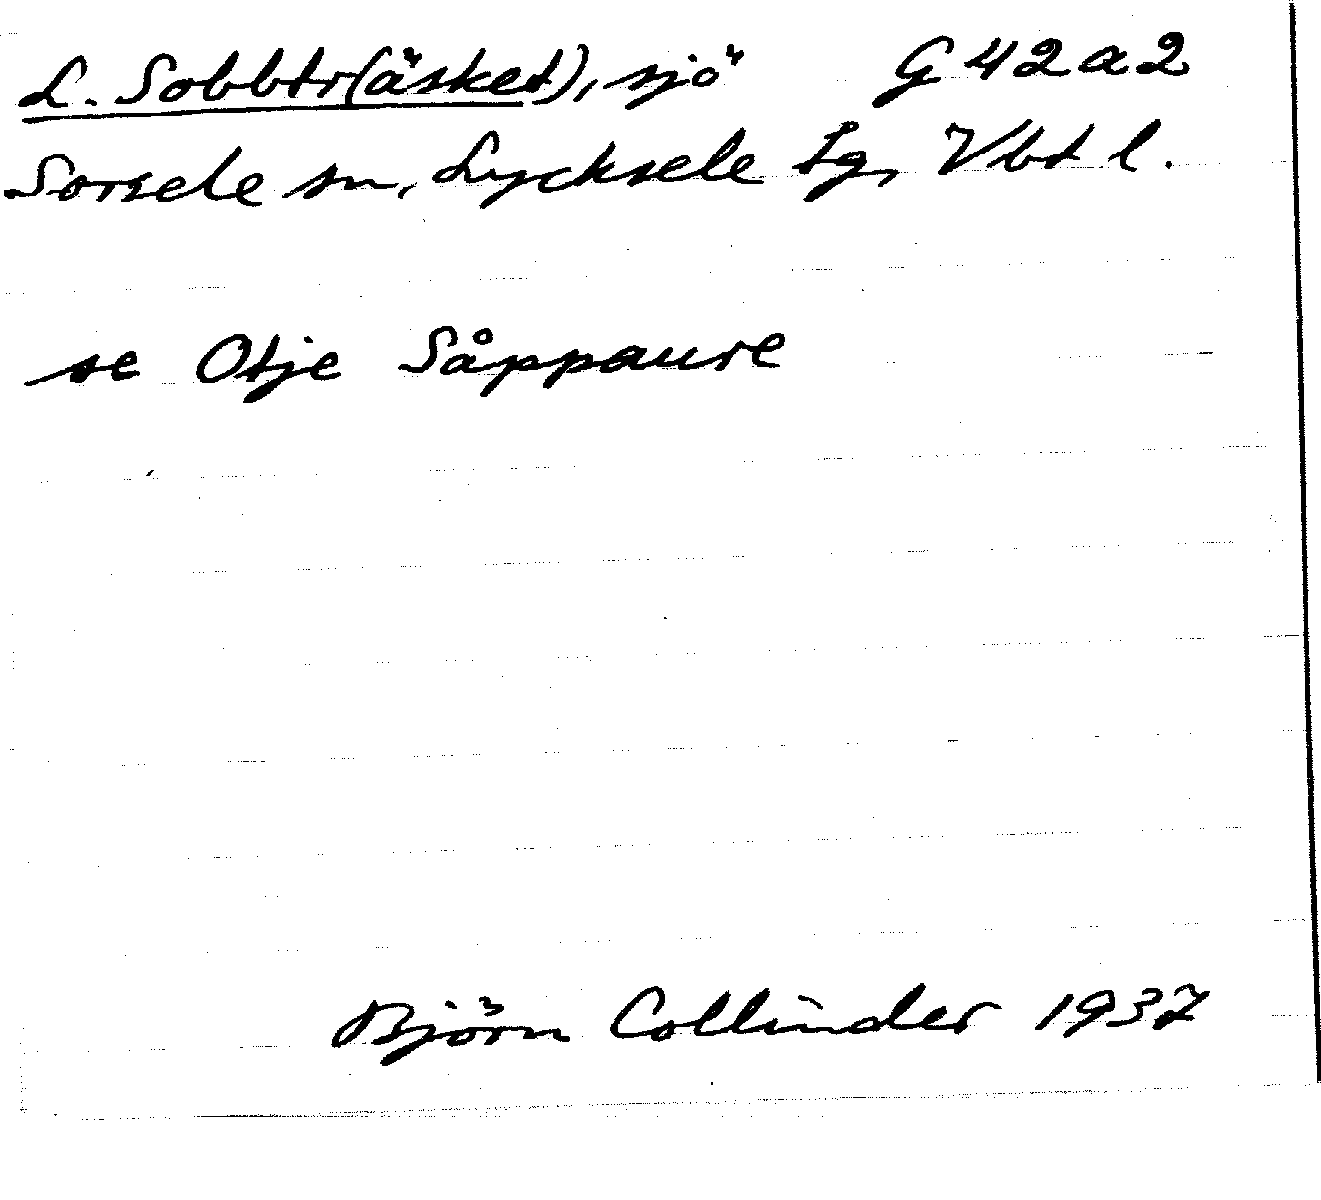 L. Sobbtr(äsket), sjö G 42 a 2
Sorsele sn, Lycksele lg, Vbt l.
se Otje Såppaure
Björn Collinder 1937